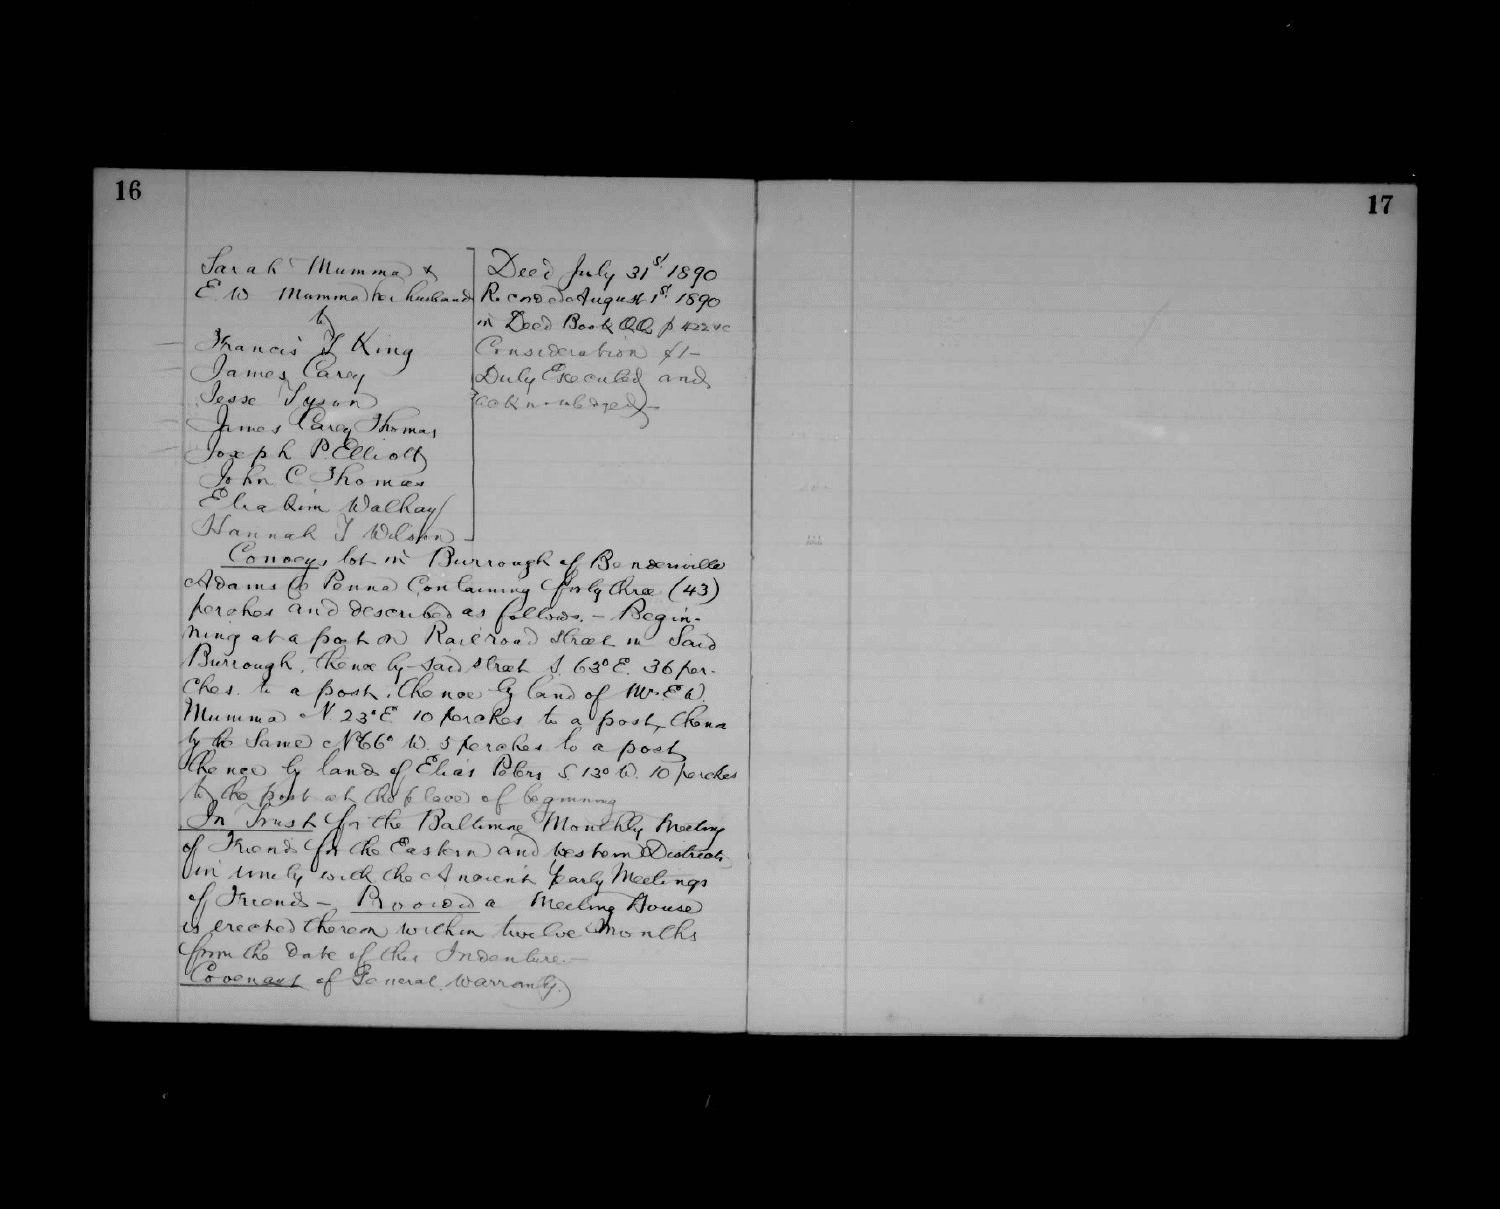 16
17
Sarah Mumma &
E. W Mumma her husband
to
Francis T King
James Carey
Jesse Tyson
James Carey Thomas
Joseph P. Elliott
John C Thomas
Eliakim Walhay
Hannah T Wilson
Deed July 31st 1890
Recorded August 1st 1890
in Deed Book QQ p 422 &c
Consideration $1–
Duly Executed and
acknowledged –
Conveys lot in Burrough of Bendersville
Adams Co Penna Containing forty three (43)
perches and described as follows. – Begin-
ning at a post on Railroad street in Said
Burrough, thence by said street S. 63° E. 36 per-
ches to a post, thence by land of Mr. E W.
Mumma N 23° E 10 perches to a post, thence
by the Same N 66° W. 5 perches to a post
thence by land of Elias Peters S 13° W. 10 perches
to the post at the place of beginning
In Trust for the Baltimore Monthly Meeting
of Friends for the Eastern and Western Districts
in unity with the Ancient Yearly Meetings
of Friends – Provided a Meeting House
is erected thereon within twelve Months
from the date of this Indenture. –
Covenant of General Warranty.